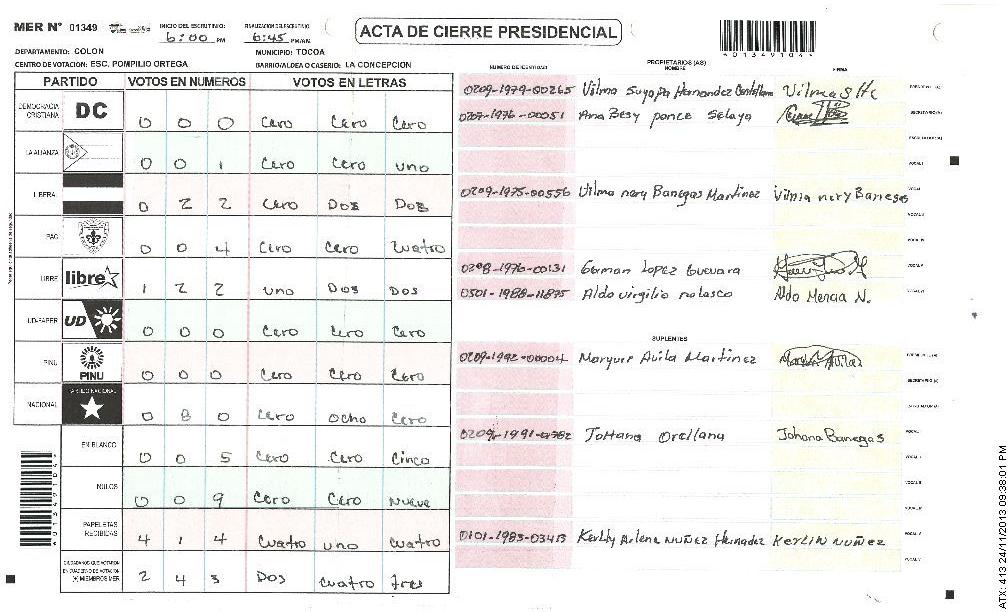 MER Nº 01349 INICIO DEL ESCRUTINIO: 6:00 PM FINALIZACION DEL ESCRUTINIO: 6:45 PM/AM
ACTA DE CIERRE PRESIDENCIAL
4013491044
DEPARTAMENTO: COLON MUNICIPIO: TOCOA
CENTRO DE VOTACION: ESC. POMPILIO ORTEGA BARRIO/ALDEA O CASERIO: LA CONCEPCION
PARTIDO VOTOS EN NUMEROS VOTOS EN LETRAS
DEMOCRACIA CRISTIANA DC 0 0 0 Cero Cero Cero
LA ALIANZA 0 0 1 Cero Cero uno
LIBERAL 0 2 2 Cero Dos Dos
PAC 0 0 4 Cero Cero Cuatro
LIBRE libre 1 2 2 uno Dos Dos
UD-FAPER UD 0 0 0 Cero Cero Cero
PINU PINU 0 0 0 Cero Cero Cero
NACIONAL PARTIDO NACIONAL 0 8 0 Cero ocho Cero
EN BLANCO 0 0 5 Cero Cero Cinco
NULOS 0 0 9 Cero Cero Nueve
PAPELETAS RECIBIDAS 4 1 4 Cuatro uno Cuatro
CIUDADANOS QUE VOTARON EN CUADERNO DE VOTACION (+) MIEMBROS MER 2 4 3 Dos cuatro tres
PROPIETARIOS (AS)
NUMERO DE IDENTIDAD NOMBRE FIRMA
0209-1979-00265 Vilma Suyapa Hernandez
0207-1976-00051 Ana Besy ponce Selaya
0209-1975-00556 Vilma nery Banegas Martinez Vilma nery Banegas
0208-1976-00131 German Lopez Guevara
0501-1988-11875 Aldo virgilio nolasco Aldo Mencia N.
SUPLENTES
0209-1992-00004 Maryuri Avila Martinez
0209-1991-00382 Johana Orellana Johana Banegas
0101-1983-03413 Arlena NUÑEZ Hernadez KERLIN NUÑEZ
ATX: 413 24/11/2013 09:38:01 PM